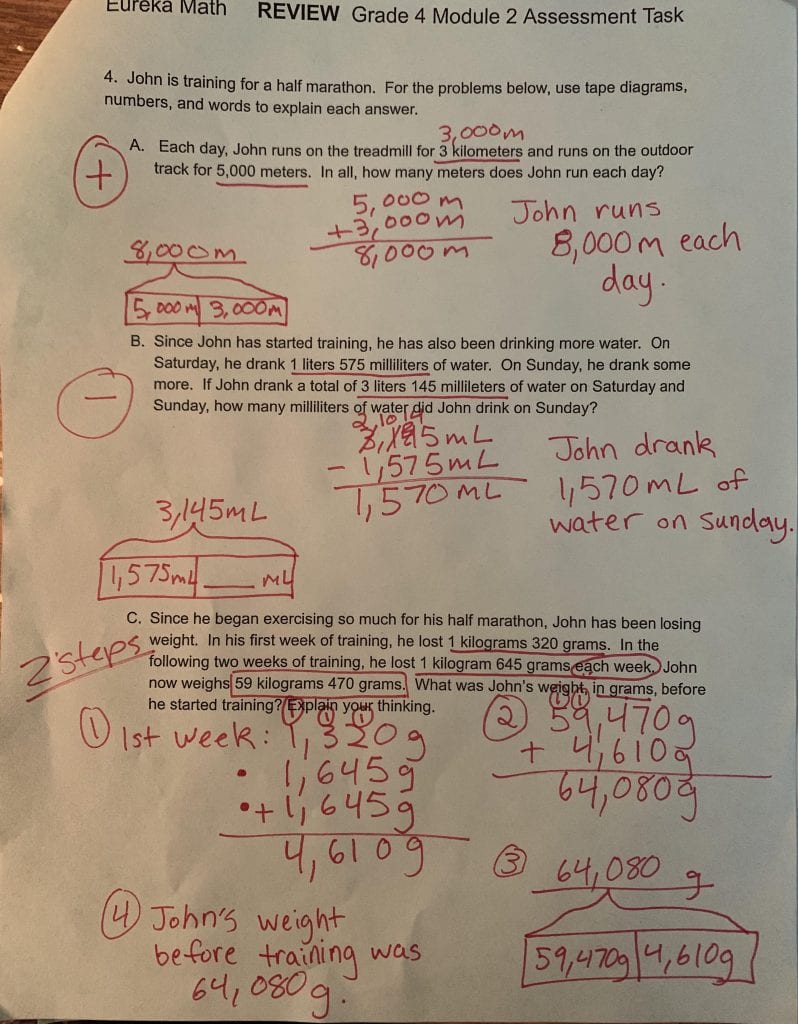 Eureka Math REVIEW Grade 4 Module 2 Assessment Task
4. John is training for a half marathon. For the problems below, use tape diagrams,
numbers, and words to explain each answer.
3,000m
+
A. Each day, John runs on the treadmill for 3 kilometers and runs on the outdoor
track for 5,000 meters. In all, how many meters does John run each day?
5,000 m
+3,000m
8,000 m
John runs
8,000m each
day.
8,000m
5,000m 3,000m
B. Since John has started training, he has also been drinking more water. On
Saturday, he drank 1 liters 575 milliliters of water. On Sunday, he drank some
more. If John drank a total of 3 liters 145 millileters of water on Saturday and
Sunday, how many milliliters of water did John drink on Sunday?
−
2,10 14
3,145mL
- 1,575mL
1,570 mL
John drank
1,570mL of
water on Sunday.
3,145mL
1,575mL ___ mL
C. Since he began exercising so much for his half marathon, John has been losing
weight. In his first week of training, he lost 1 kilograms 320 grams. In the
following two weeks of training, he lost 1 kilogram 645 grams each week. John
now weighs 59 kilograms 470 grams. What was John's weight, in grams, before
he started training? Explain your thinking.
2 steps
1 1 1
① 1st week: 1,320g
• 1,645g
•+ 1,645g
4,610g
1 1
② 59,470g
+ 4,610g
64,080g
③ 64,080 g
59,470g 4,610g
④ John's weight
before training was
64,080g.